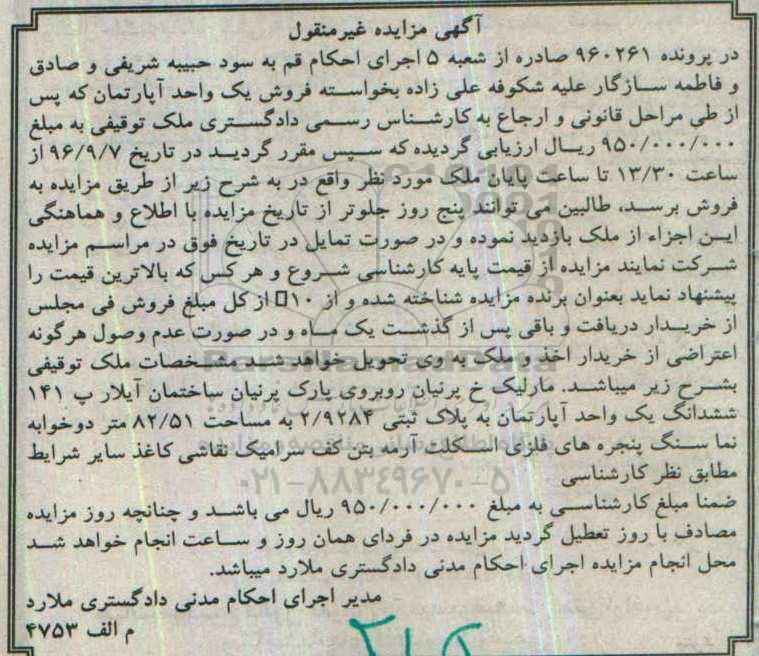 آگهی مزایده غیرمنقول
در پرونده ۹۶۰۲۶۱ صادره از شعبه ۵ اجرای احکام قم به سود حبیبه شریفی و صادق
و فاطمه سازگار علیه شکوفه علی زاده بخواسته فروش یک واحد آپارتمان که پس
از طی مراحل قانونی و ارجاع به کارشناس رسمی دادگستری ملک توقیفی به مبلغ
۹۵۰/۰۰۰/۰۰۰ ریال ارزیابی گردیده که سپس مقرر گردید در تاریخ ۹۶/۹/۷ از
ساعت ۱۳/۳۰ تا ساعت پایان ملک مورد نظر واقع در به شرح زیر از طریق مزایده به
فروش برسد، طالبین می توانند پنج روز جلوتر از تاریخ مزایده با اطلاع و هماهنگی
این اجزاء از ملک بازدید نموده و در صورت تمایل در تاریخ فوق در مراسم مزایده
شرکت نمایند مزایده از قیمت پایه کارشناسی شروع و هر کس که بالاترین قیمت را
پیشنهاد نماید بعنوان برنده مزایده شناخته شده و از ۱۰□ از کل مبلغ فروش فی مجلس
از خریدار دریافت و باقی پس از گذشت یک ماه و در صورت عدم وصول هرگونه
اعتراضی از خریدار اخذ و ملک به وی تحویل خواهد شد مشخصات ملک توقیفی
بشرح زیر میباشد. مارلیک خ پرنیان روبروی پارک پرنیان ساختمان آیلار پ ۱۴۱
ششدانگ یک واحد آپارتمان به پلاک ثبتی ۲/۹۲۸۴ به مساحت ۸۲/۵۱ متر دوخوابه
نما سنگ پنجره های فلزی اسکلت آرمه بتن کف سرامیک نقاشی کاغذ سایر شرایط
مطابق نظر کارشناسی
۰۲۱-۸۸۳۴۹۶۷۰-۵
ضمنا مبلغ کارشناسی به مبلغ ۹۵۰/۰۰۰/۰۰۰ ریال می باشد و چنانچه روز مزایده
مصادف با روز تعطیل گردید مزایده در فردای همان روز و ساعت انجام خواهد شد
محل انجام مزایده اجرای احکام مدنی دادگستری ملارد میباشد.
مدیر اجرای احکام مدنی دادگستری ملارد
م الف ۴۷۵۳